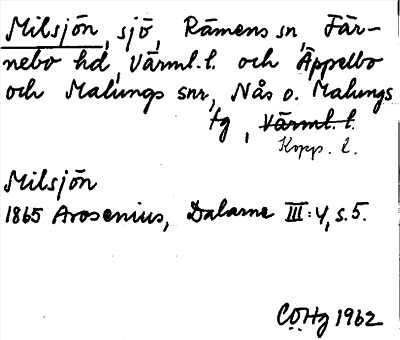 Milsjön, sjö, Rämens sn, Fär-
nebo hd, Värml. l. och Äppelbo
och Malungs snr, Nås o. Malungs
tg, Värml. l.
Kopp. l.
Milsjön
1865 Arosenius, Dalarne III:4, s.5.
COHg 1962